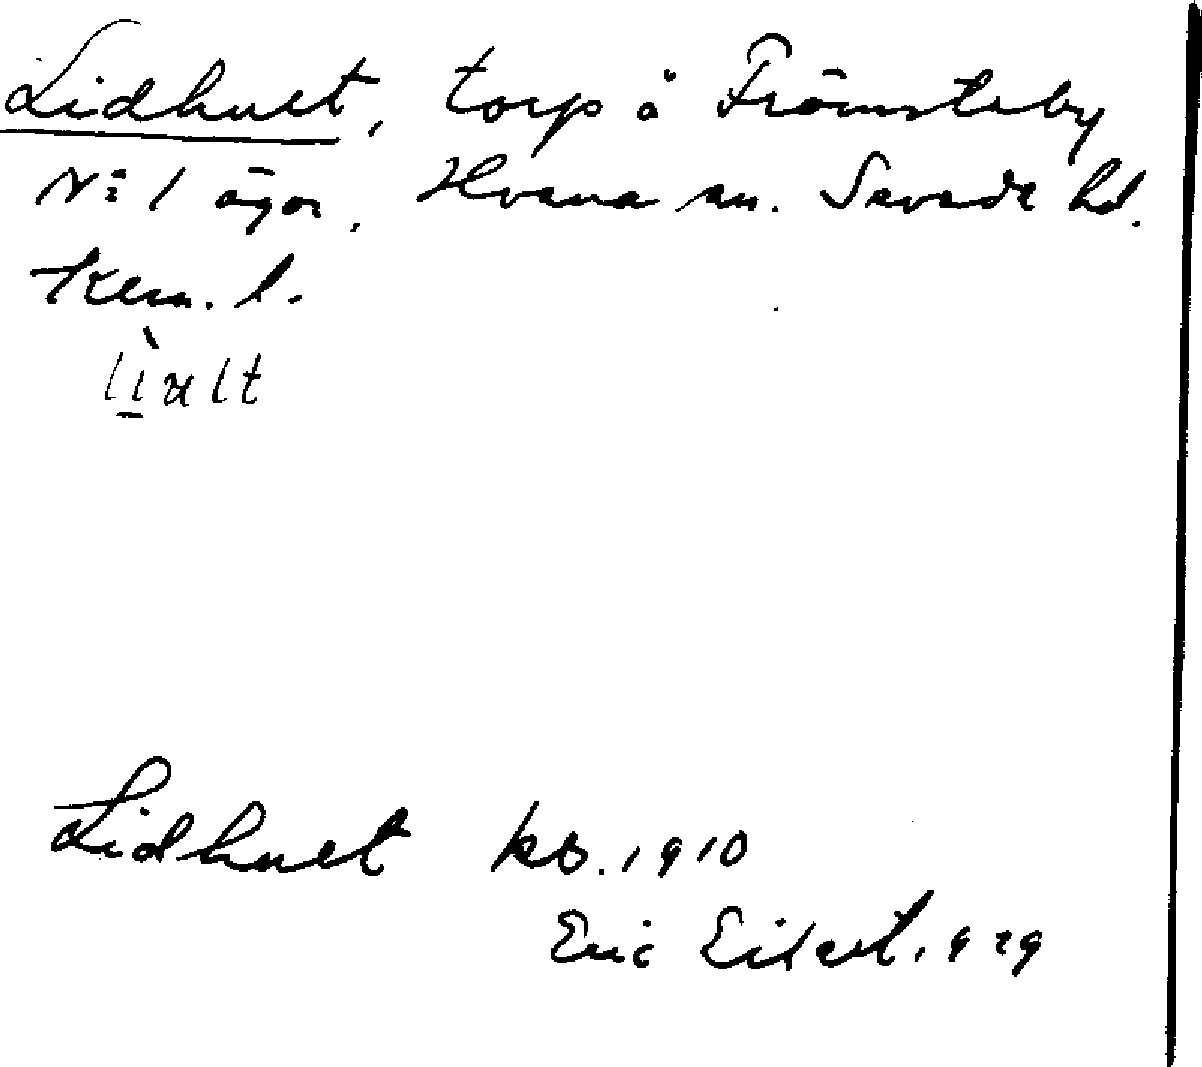 Lidhult, torp å Frömsteby
N:o 1 ägor. Hvena sn. Sevede hd.
Kem. l.
Lidhult kb. 1910
Eric Eilert. 1929